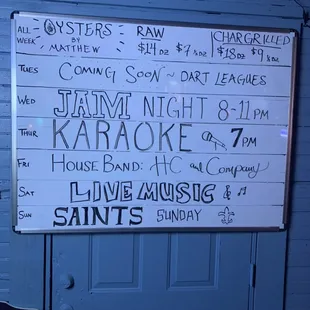 ALL WEEK OYSTERS BY MATTHEW RAW $14 DZ $7 ½ DZ CHARGRILLED $18 DZ $9 ½ DZ
TUES COMING SOON ~ DART LEAGUES
WED JAM NIGHT 8-11 PM
THUR KARAOKE 7 PM
FRI HOUSE BAND: HC and Company
SAT LIVE MUSIC
SUN SAINTS SUNDAY